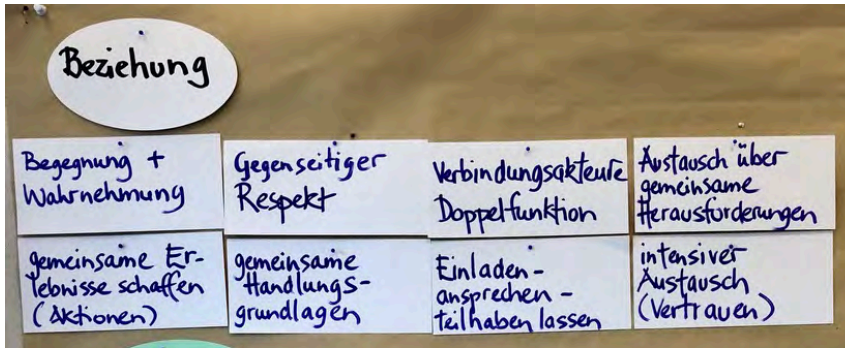 Beziehung
Begegnung +
Wahrnehmung
Gegenseitiger
Respekt
Verbindungsakteure
Doppelfunktion
Austausch über
gemeinsame
Herausforderungen
gemeinsame Er-
lebnisse schaffen
(Aktionen)
gemeinsame
Handlungs-
grundlagen
Einladen-
ansprechen-
teilhaben lassen
intensiver
Austausch
(Vertrauen)